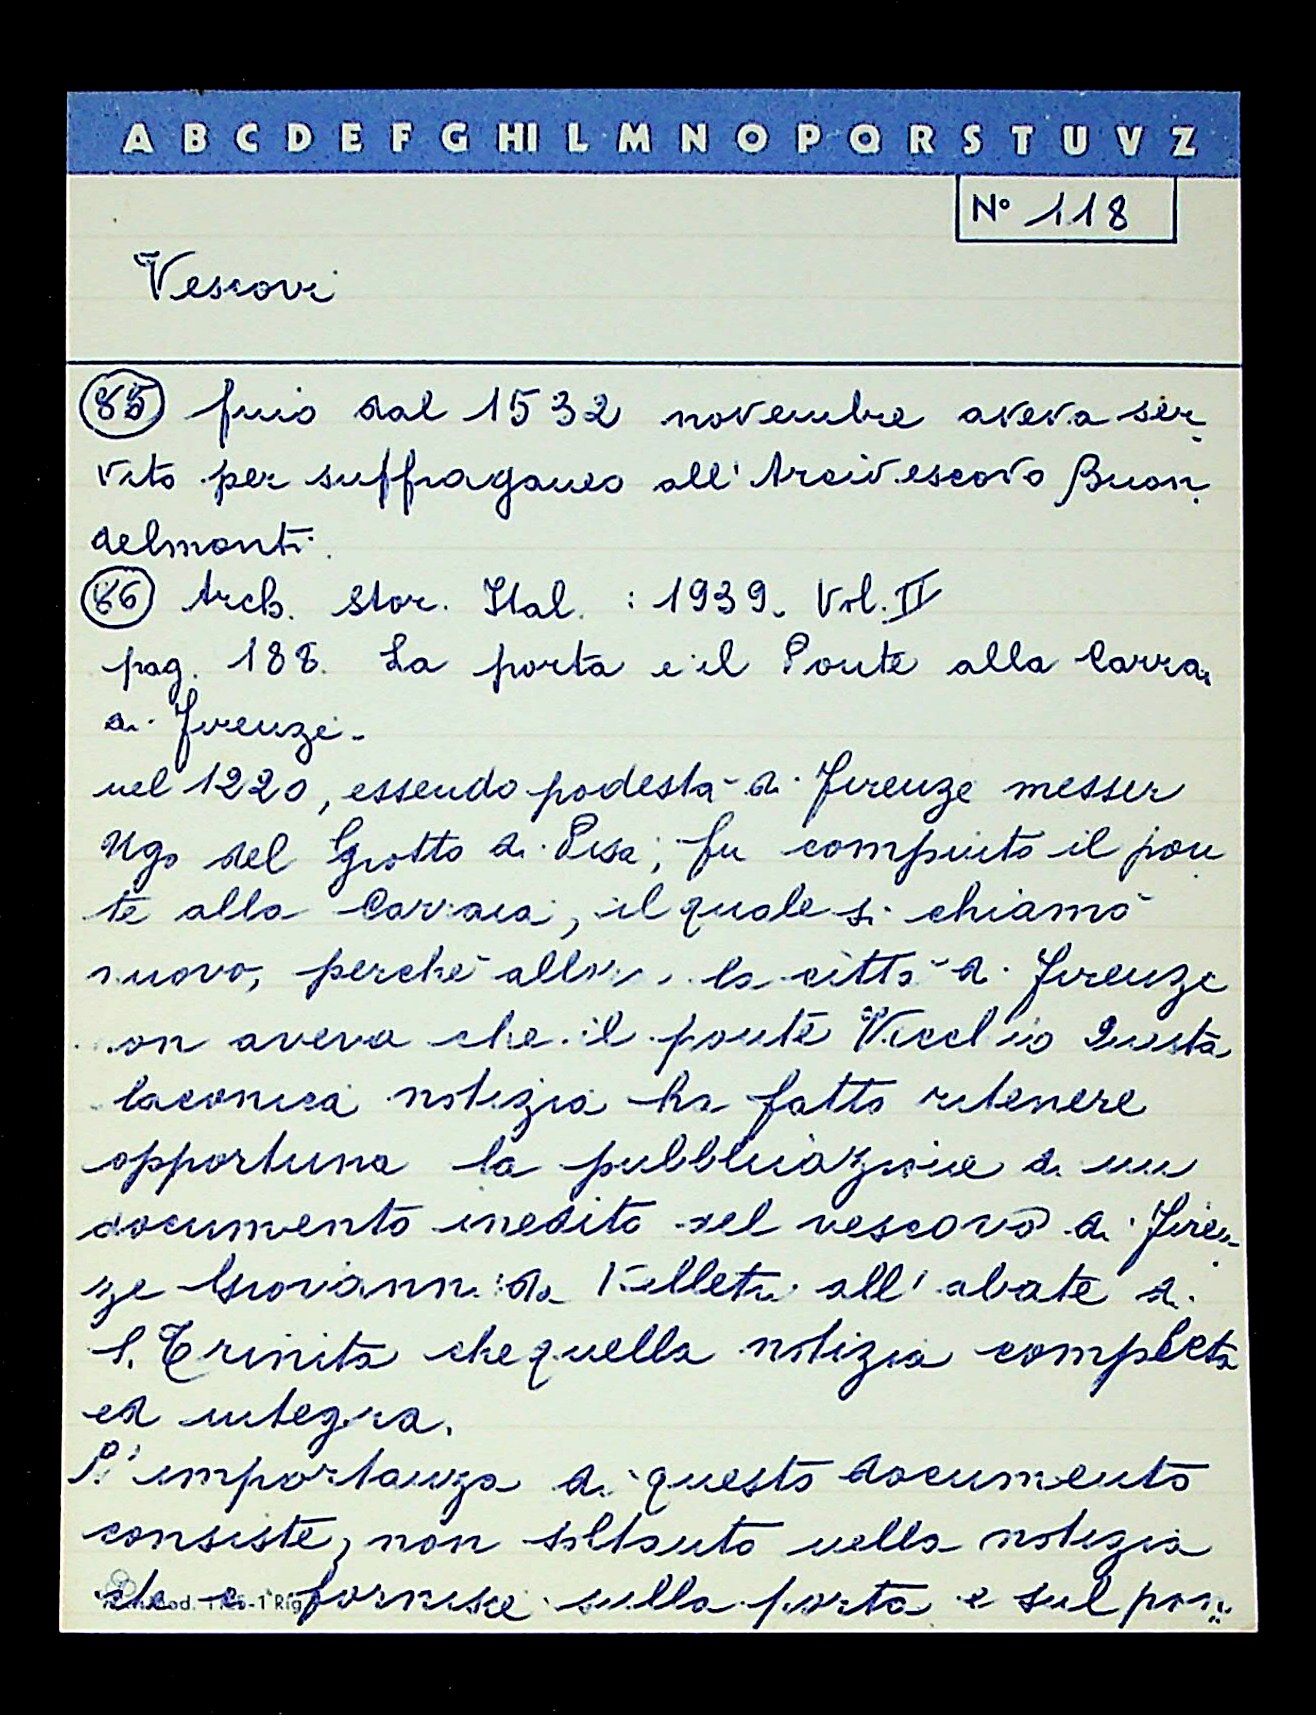 A B C D E F G HI L M N O P Q R S T U V Z
N° 118
Vescovi
85 fino dal 1532 novembre aveva ser-
vito per suffraganeo all'Arcivescovo Buon-
delmonti.
86 Arch. Stor. Ital. : 1939. Vol. II
pag. 188. La porta e il Ponte alla Carra.
di Firenze.
nel 1220, essendo podestà di Firenze messer
Ugo del Grotto di Pisa, fu compiuto il pon
te alla Carraia, il quale si chiamò
nuovo, perchè allora la città di Firenze
non aveva che il ponte Vecchio Questa
laconica notizia ha fatto ritenere
opportuna la pubblicazione di un
documento inedito del vescovo di Firen-
ze Giovanni da Velletri all'abate di
S. Trinita che quella notizia completa
ed integra.
L'importanza di questo documento
consiste, non soltanto nella notizia
che ci fornisce sulla porta e sul pon-